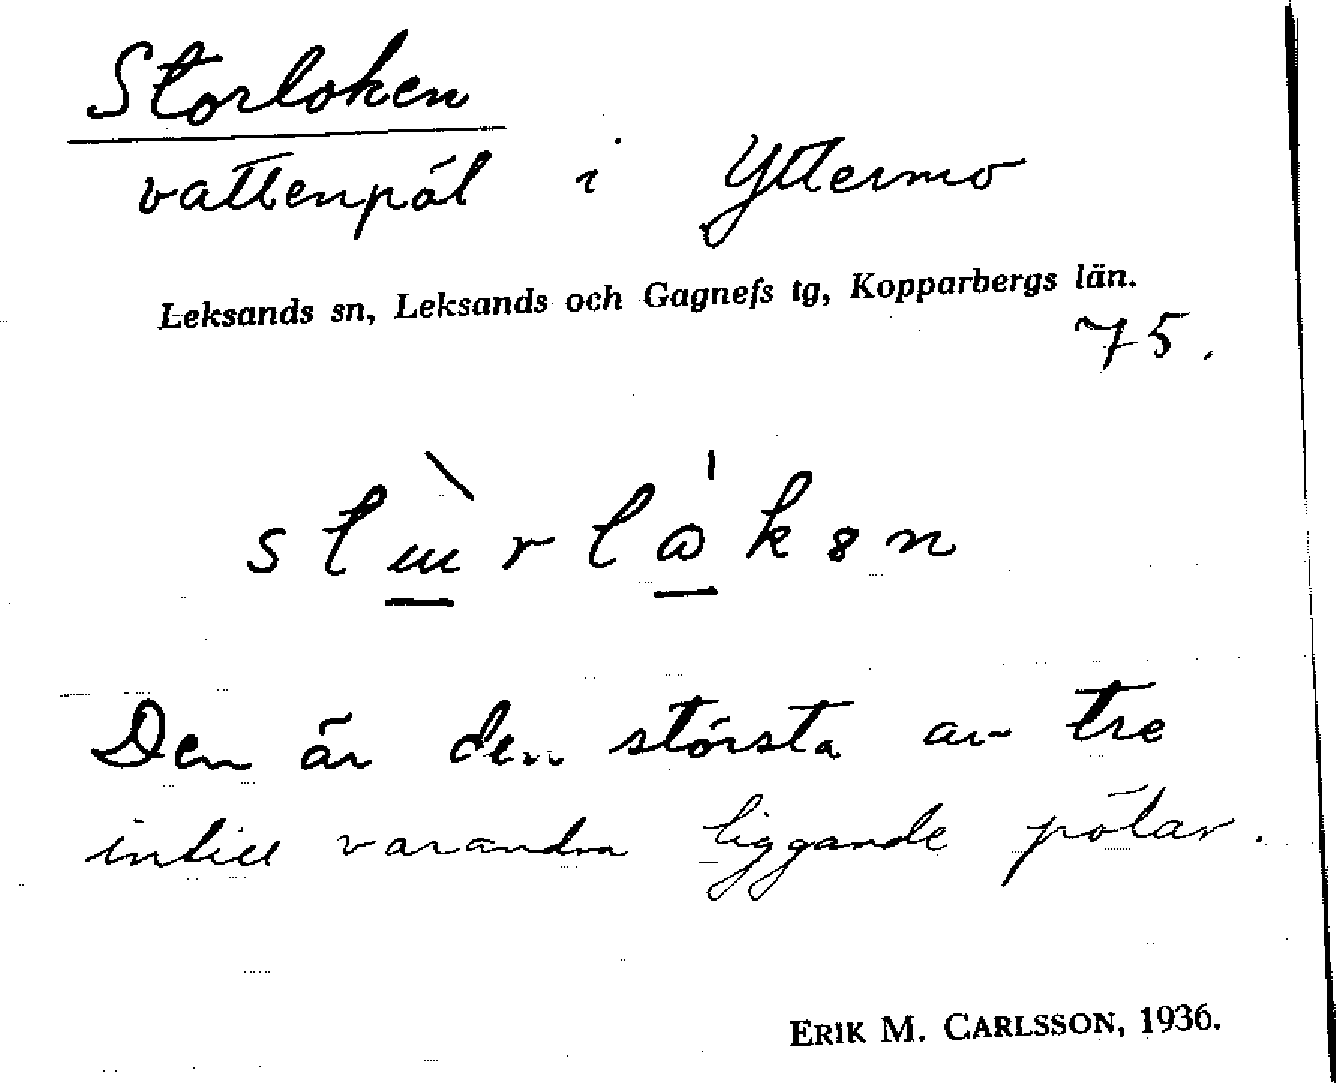 Storloken
vattenpöl i Yttermo
Leksands sn, Leksands och Gagnefs tg, Kopparbergs län.
75.
Den är den största av tre
intill varandra liggande pölar.
ERIK M. CARLSSON, 1936.